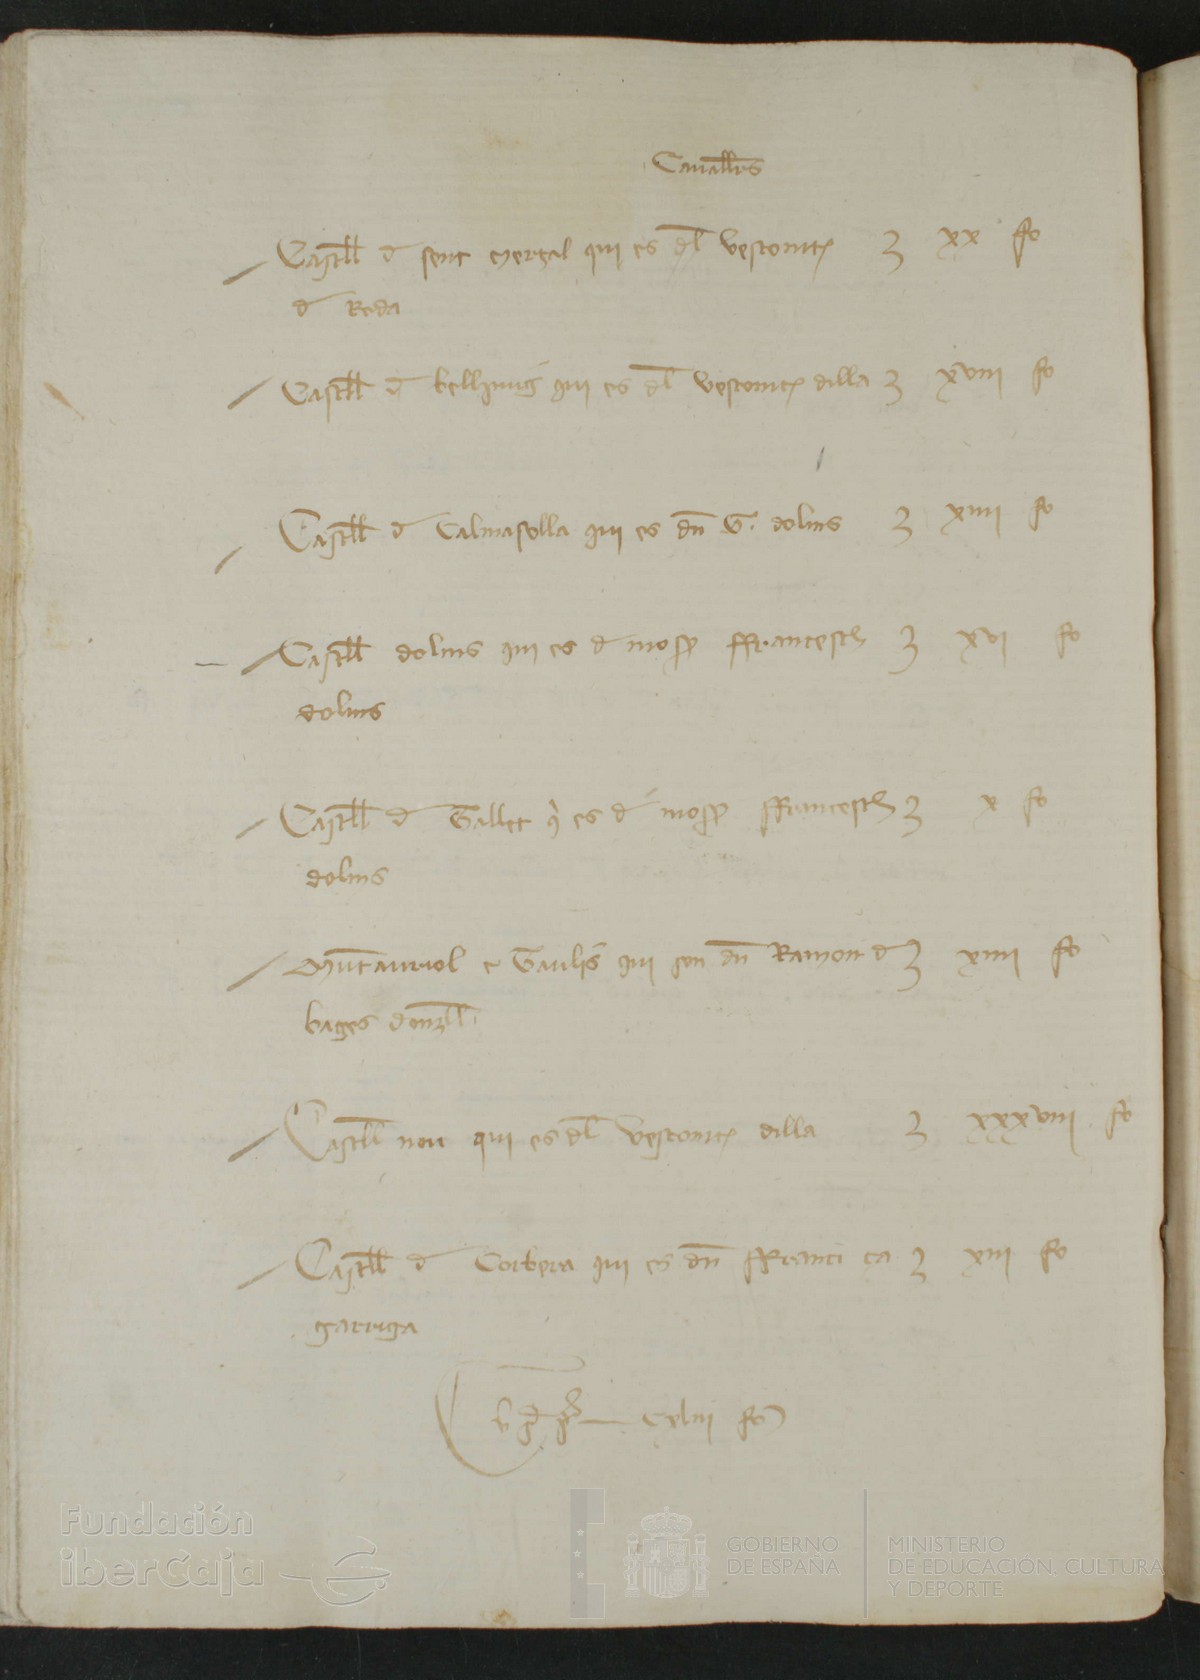 Cauallers
Castell d sent Merçal qui es dl vescomte xx fo
d Roda
Castell d bellpuig qui es dl vescomte dilla xviii fo
Castell d Calmasella qui es dn G. dolms xiiii fo
Castell dolms qui es d mossen ffrancesch xvi fo
dolms
Castell d Tallet q es d mossen ffrancesch x fo
dolms
Muntauriol e Taulis qui son dn Ramon d xiiii fo
bages donzell
Castell nou qui es dl vescomte dilla xxxviii fo
Castell d Corbera qui es dn ffranci ça xiii fo
garriga
Cxliii fo
Fundación
iberCaja
GOBIERNO
DE ESPAÑA
MINISTERIO
DE EDUCACIÓN, CULTURA
Y DEPORTE